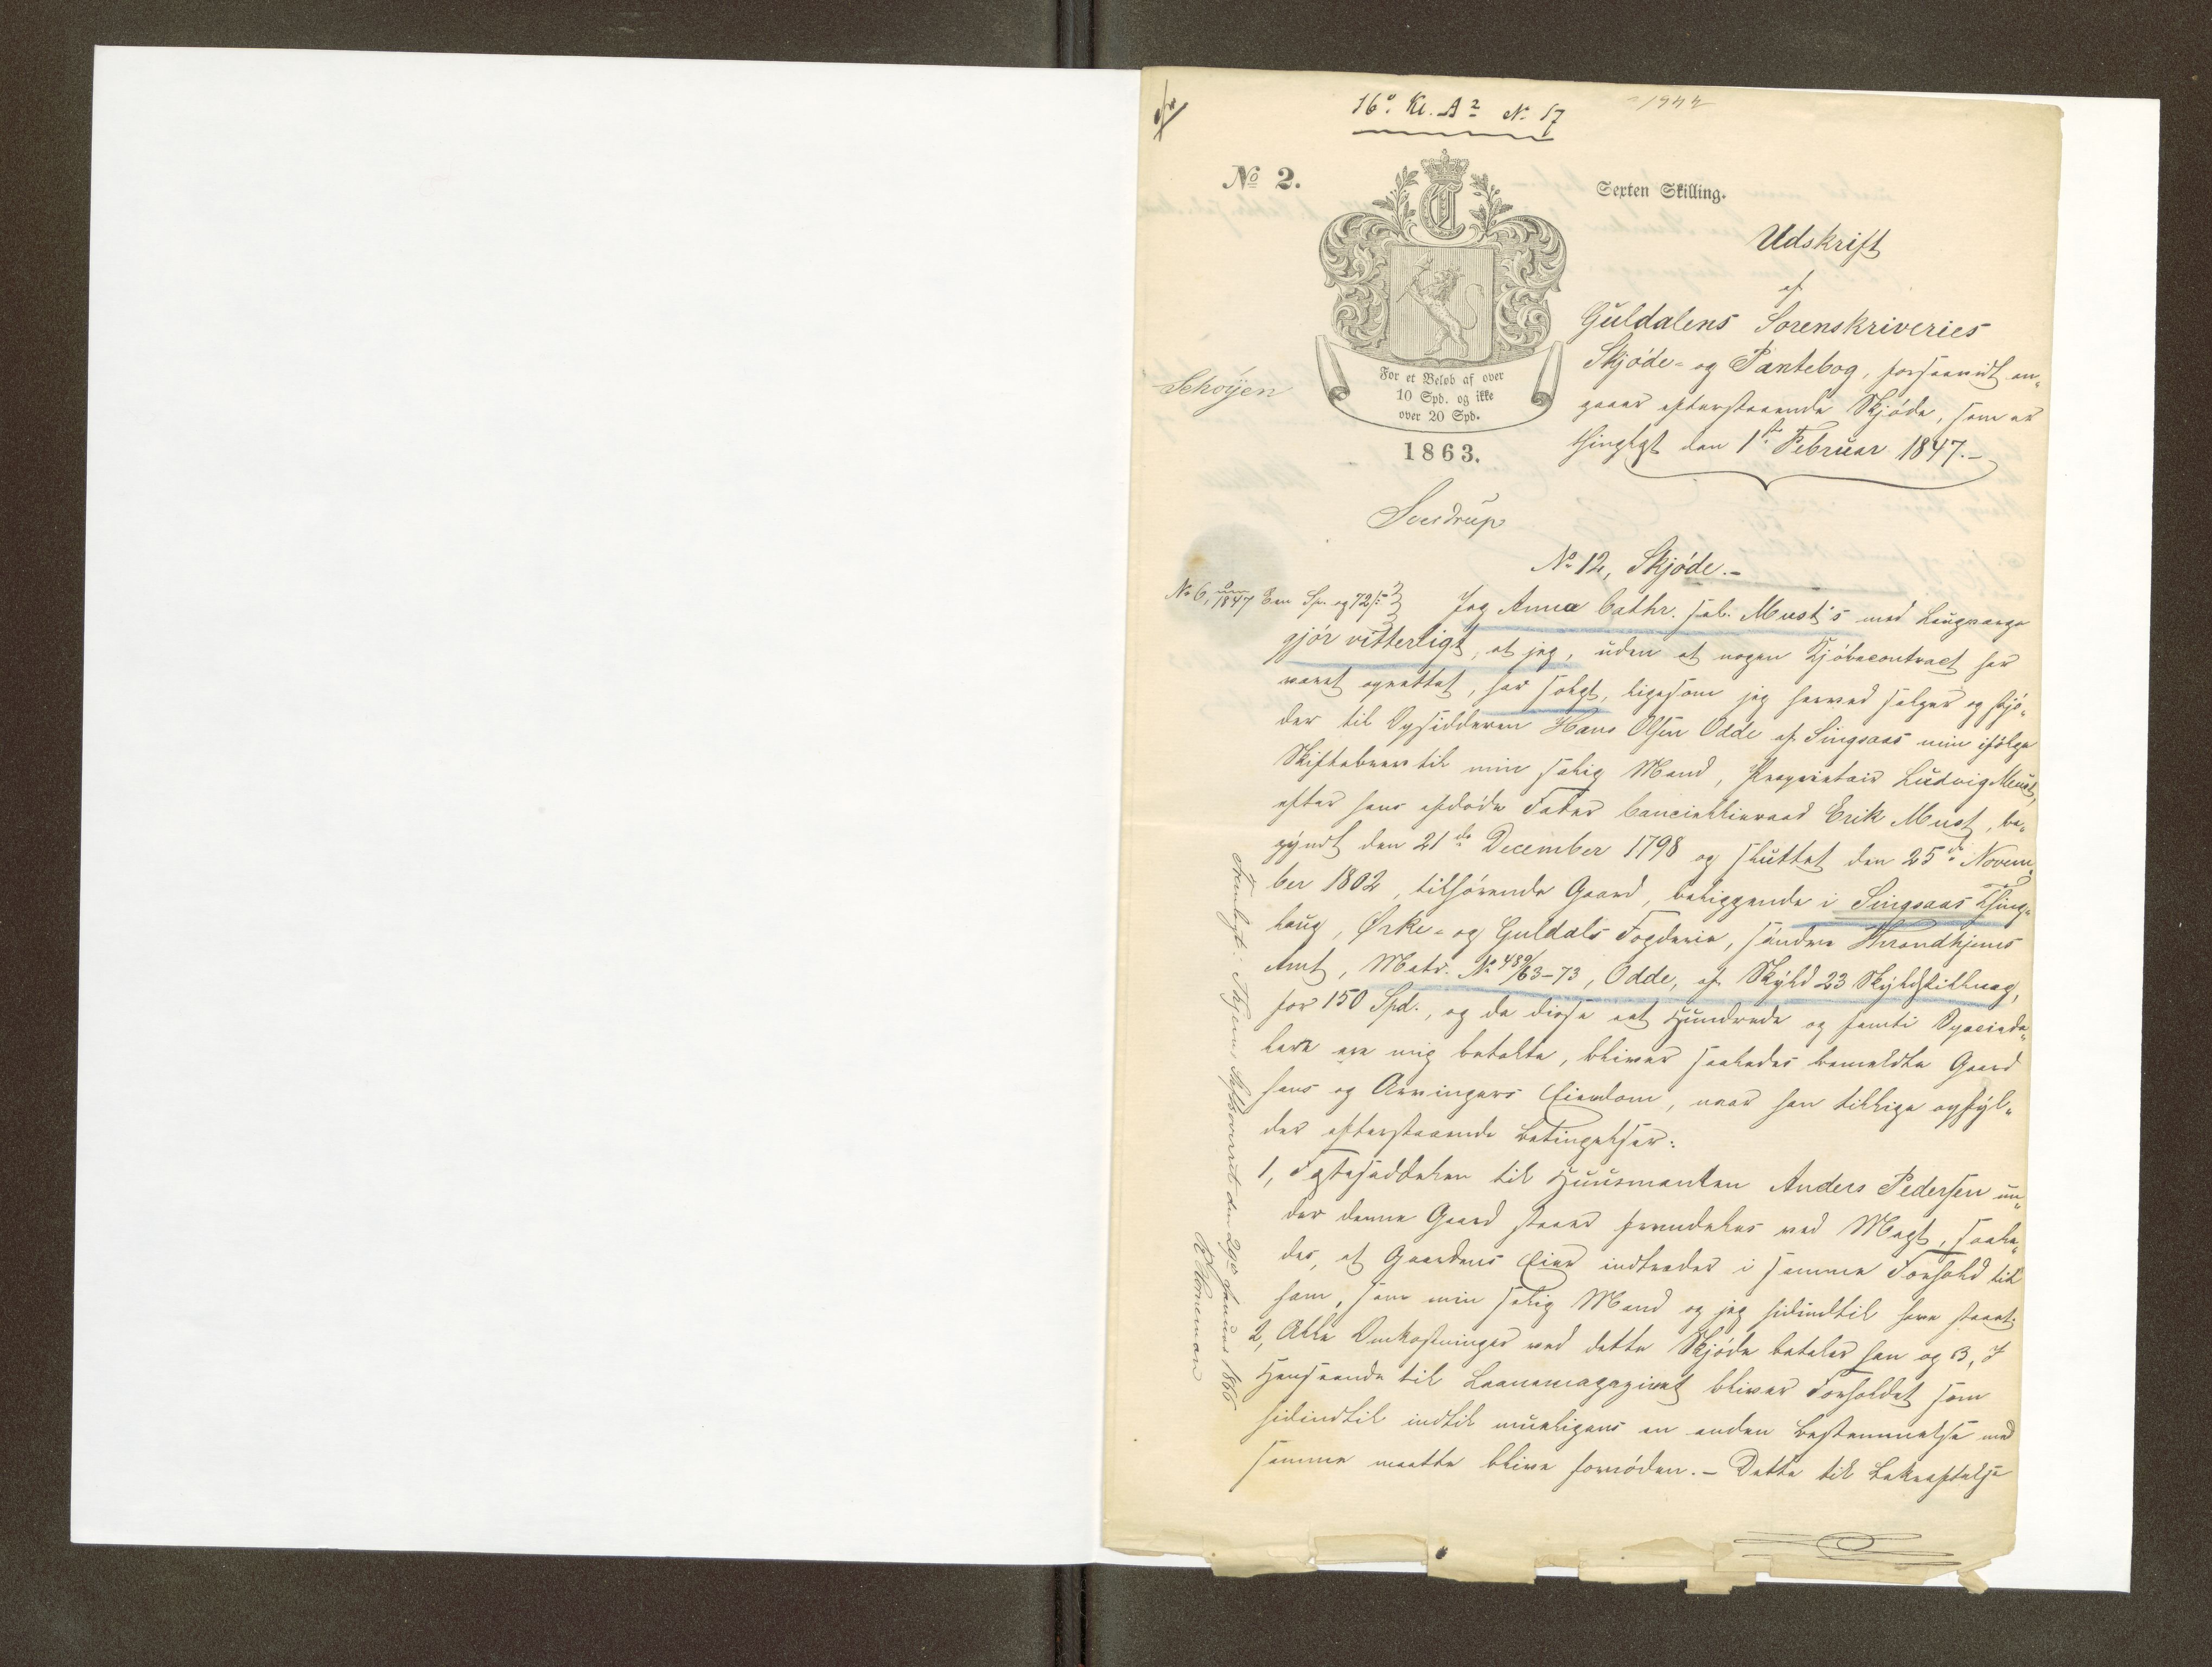 16de Kl. A 2 No 17
1944
No 2.
Sexten Skilling.
For et Beløb af over
10 Spd. og ikke
over 20 Spd.
1863.
Schøÿen
Sverdrup
Udskrift
af
Guldalens Sorenskriveries
Skjøde- og Pantebog, forsaavidt an-
gaaer efterstaaende Skjøde, som er
thinglyst den 1ste Februar 1847.-
No 12, Skjøde.-
No 6, 1847 Een Sp. og 72 s:
Jeg Anna Cathr. sal. Must's med Laugværge
gjør vitterligt, at jeg, uden at nogen Kjøbecontract har
været oprettet, har solgt, ligesom jeg herved sælger og skjø-
der til Opsidderen Hans Olsen Odde af Singsaas min ifølge
Skiftebrev til min salig Mand, Proprietair Ludvig Must,
efter hans afdøde Fader Cancelliеraad Erik Must, be-
gyndt den 21de December 1798 og sluttet den 25de Novem-
ber 1802, tilhørende Gaard, beliggende i Singsaas Thing-
laug, Ørke- og Guldals Fogderie, søndre Throndhjems
Amt, Matr. No 489/63-73, Odde, af Skyld 23 Skyldskilling,
for 150 Spd., og da disse eet Hundrede og femti Speciеda-
lere ere mig betalte, bliver saaledes bemeldte Gaard
hans og Arvingers Eiendom, naar han tillige opfyl-
der efterstaaende Betingelser:
1, Fæstesedlelen til Huusmanden Anders Pedersen un-
der denne Gaard staaer fremdeles ved Magt, saale-
des, at Gaardens Eier indtræder i samme Forhold til
ham, som min salig Mand og jeg hidindtil have staaet.
2, Alle Omkostninger ved dette Skjøde betaler han og 3, I
Henseende til Laanemagazinet bliver Forholdet som
hidindtil indtil muligens en anden Bestemmelse med
samme maatte blive fornøden. - Dette til Bekræftelse
Fremlagt i Thjems Stiftsoverret den 29de Januar 1866